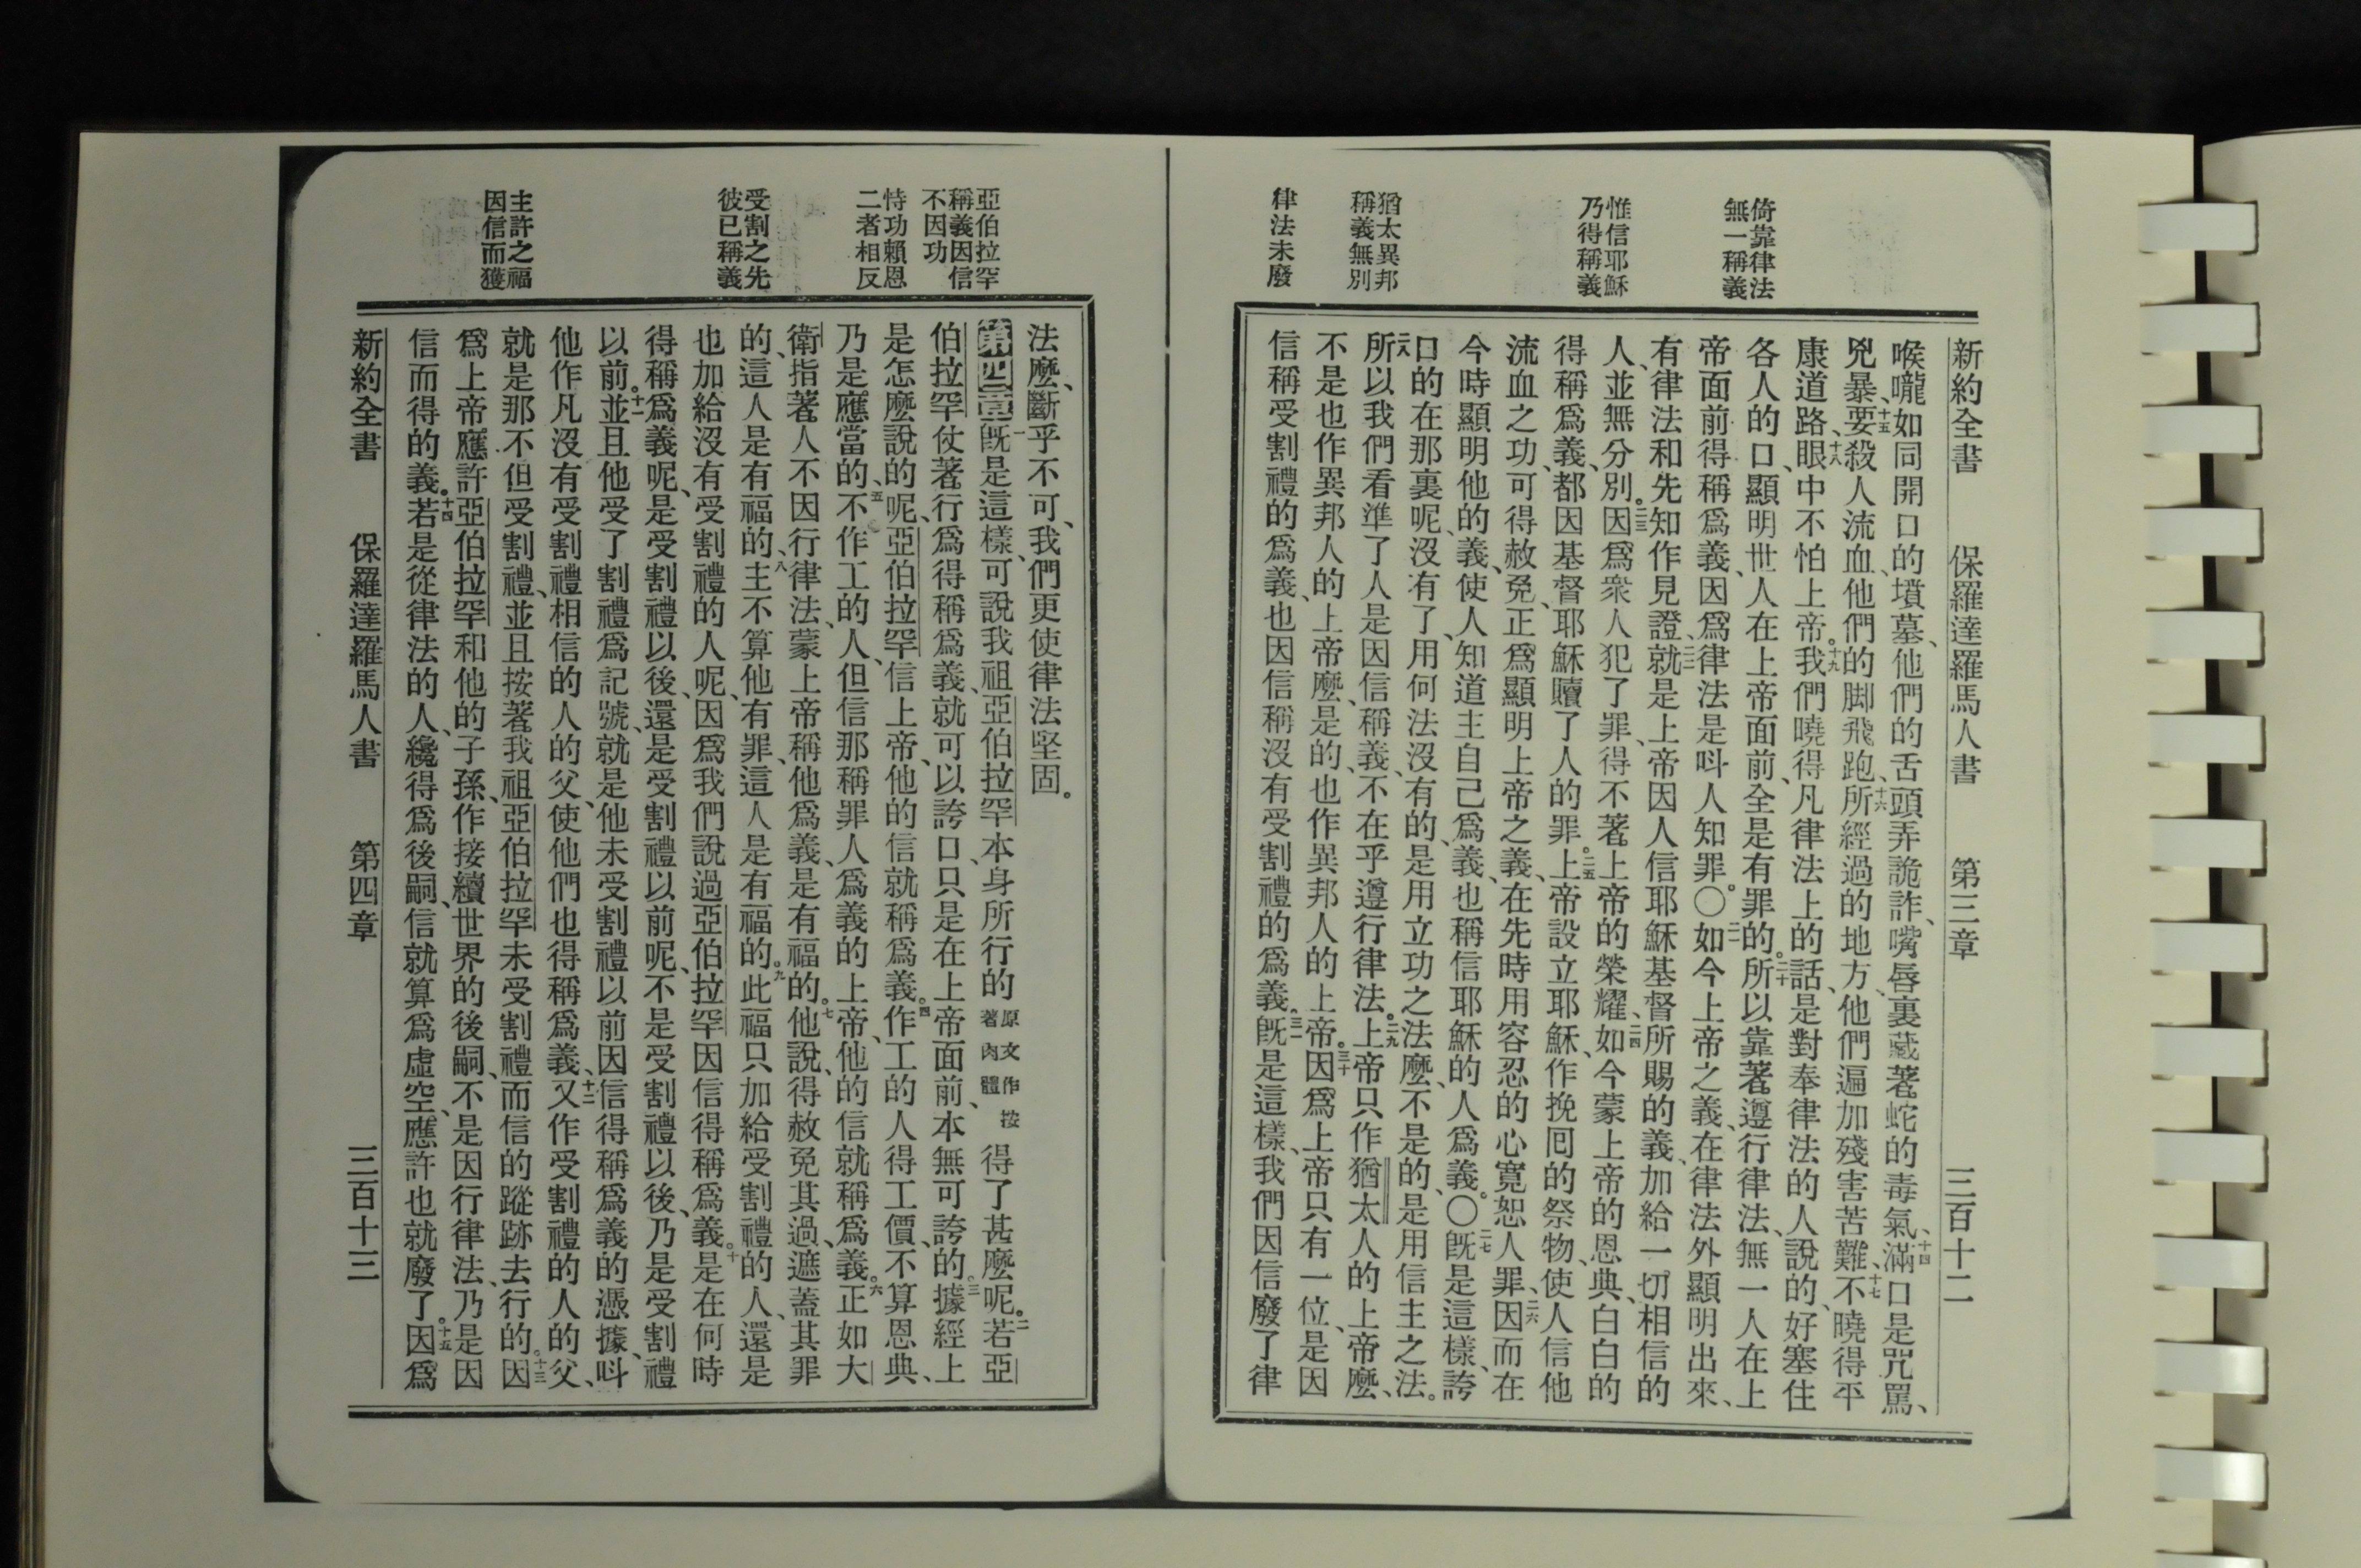 倚靠律法
無一稱義
惟信耶穌
乃得稱義
猶太異邦
稱義無別
律法未廢
新約全書 保羅達羅馬人書 第三章 三百十二
喉嚨如同開口的墳墓、他們的舌頭弄詭詐、嘴唇裏藏著蛇的毒氣、十四滿口是咒罵、
兇暴、十五要殺人流血、他們的脚飛跑、十六所經過的地方、他們遍加殘害苦難、十七不曉得平
康道路、十八眼中不怕上帝。十九我們曉得凡律法上的話、是對奉律法的人說的、好塞住
各人的口、顯明世人在上帝面前、全是有罪的。二十所以靠著遵行律法、無一人在上
帝面前得稱爲義、因爲律法是呌人知罪。〇二一如今上帝之義、在律法外顯明出來、
有律法和先知作見證、二二就是上帝因人信耶穌基督所賜的義、加給一切相信的
人、並無分別。二三因爲衆人犯了罪、得不著上帝的榮耀、二四如今蒙上帝的恩典、白白的
得稱爲義、都因基督耶穌贖了人的罪。二五上帝設立耶穌、作挽囘的祭物、使人信他
流血之功、可得赦免、正爲顯明上帝之義、在先時用容忍的心寬恕人罪、二六因而在
今時顯明他的義、使人知道主自己爲義、也稱信耶穌的人爲義。〇二七既是這樣、誇
口的在那裏呢、沒有了、用何法沒有的、是用立功之法麽、不是的、是用信主之法。
二八所以我們看準了人是因信稱義、不在乎遵行律法。二九上帝只作猶太人的上帝麽、
不是也作異邦人的上帝麽、是的、也作異邦人的上帝。三十因爲上帝只有一位、是因
信稱受割禮的爲義、也因信稱沒有受割禮的爲義。三一既是這樣、我們因信廢了律
亞伯拉罕
稱義因信
不因功
恃功賴恩
二者相反
受割之先
彼已稱義
主許之福
因信而獲
法麽、斷乎不可、我們更使律法堅固。
第四章 一既是這樣、可說我祖亞伯拉罕、本身所行的原文作按著肉體得了甚麽呢。二若亞
伯拉罕仗著行爲得稱爲義、就可以誇口、只是在上帝面前、本無可誇的。三據經上
是怎麽說的呢、亞伯拉罕信上帝、他的信就稱爲義。四作工的人得工價、不算恩典、
乃是應當的、五不作工的人、但信那稱罪人爲義的上帝、他的信就稱爲義。六正如大
衛指著人不因行律法、蒙上帝稱他爲義、是有福的。七他說、得赦免其過、遮蓋其罪
的、這人是有福的、八主不算他有罪、這人是有福的。九此福只加給受割禮的人、還是
也加給沒有受割禮的人呢、因爲我們說過亞伯拉罕因信得稱爲義。十是在何時
得稱爲義呢、是受割禮以後、還是受割禮以前呢、不是受割禮以後、乃是受割禮
以前。十一並且他受了割禮爲記號、就是他未受割禮以前因信得稱爲義的憑據、呌
他作凡沒有受割禮相信的人的父、使他們也得稱爲義、十二又作受割禮的人的父、
就是那不但受割禮、並且按著我祖亞伯拉罕未受割禮而信的蹤跡去行的。十三因
爲上帝應許亞伯拉罕和他的子孫、作接續世界的後嗣、不是因行律法、乃是因
信而得的義。十四若是從律法的人、纔得爲後嗣、信就算爲虛空、應許也就廢了。十五因爲
新約全書 保羅達羅馬人書 第四章 三百十三